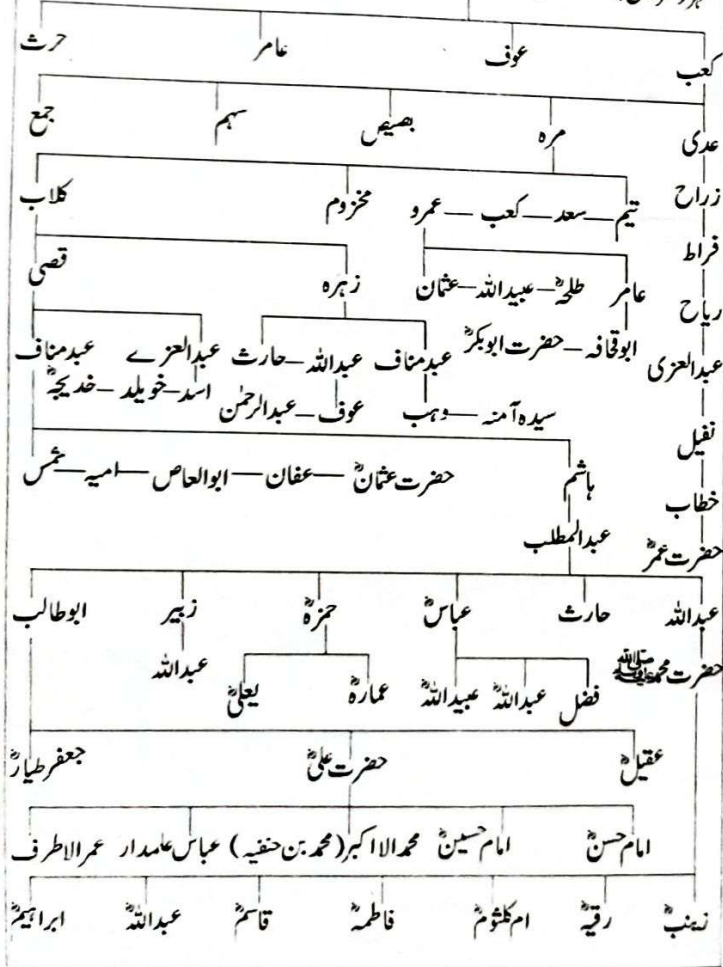 کعب عوف عامر حرث
عدی مرہ بصیص سہم جمع
زراح تیم — سعد — کعب — عمرو مخزوم کلاب
فراط زہرہ قصی
ریاح عامر طلحہؓ — عبیداللہ — عثمان
عبدالعزی ابوقحافہ — حضرت ابوبکرؓ عبدمناف عبداللہ — حارث عبدالعزے عبدمناف
نفیل سیدہ آمنہ — وہب عوف — عبدالرحمٰن اسد — خویلد — خدیجہؓ
خطاب ہاشم حضرت عثمانؓ — عفان — ابوالعاص — امیہ — شمس
حضرت عمرؓ عبدالمطلب
عبداللہ حارث عباسؓ حمزہؓ زبیر ابوطالب
حضرت محمدﷺ فضل عبداللہؓ عبیداللہؓ عمارہؓ یعلیؓ عبداللہ
عقیلؓ حضرت علیؓ جعفر طیارؓ
امام حسنؓ امام حسینؓ محمد الااکبر (محمد بن حنفیہ) عباس علمدار عمر الاطرف
زینبؓ رقیہؓ ام کلثومؓ فاطمہؓ قاسمؓ عبداللہؓ ابراہیمؓ